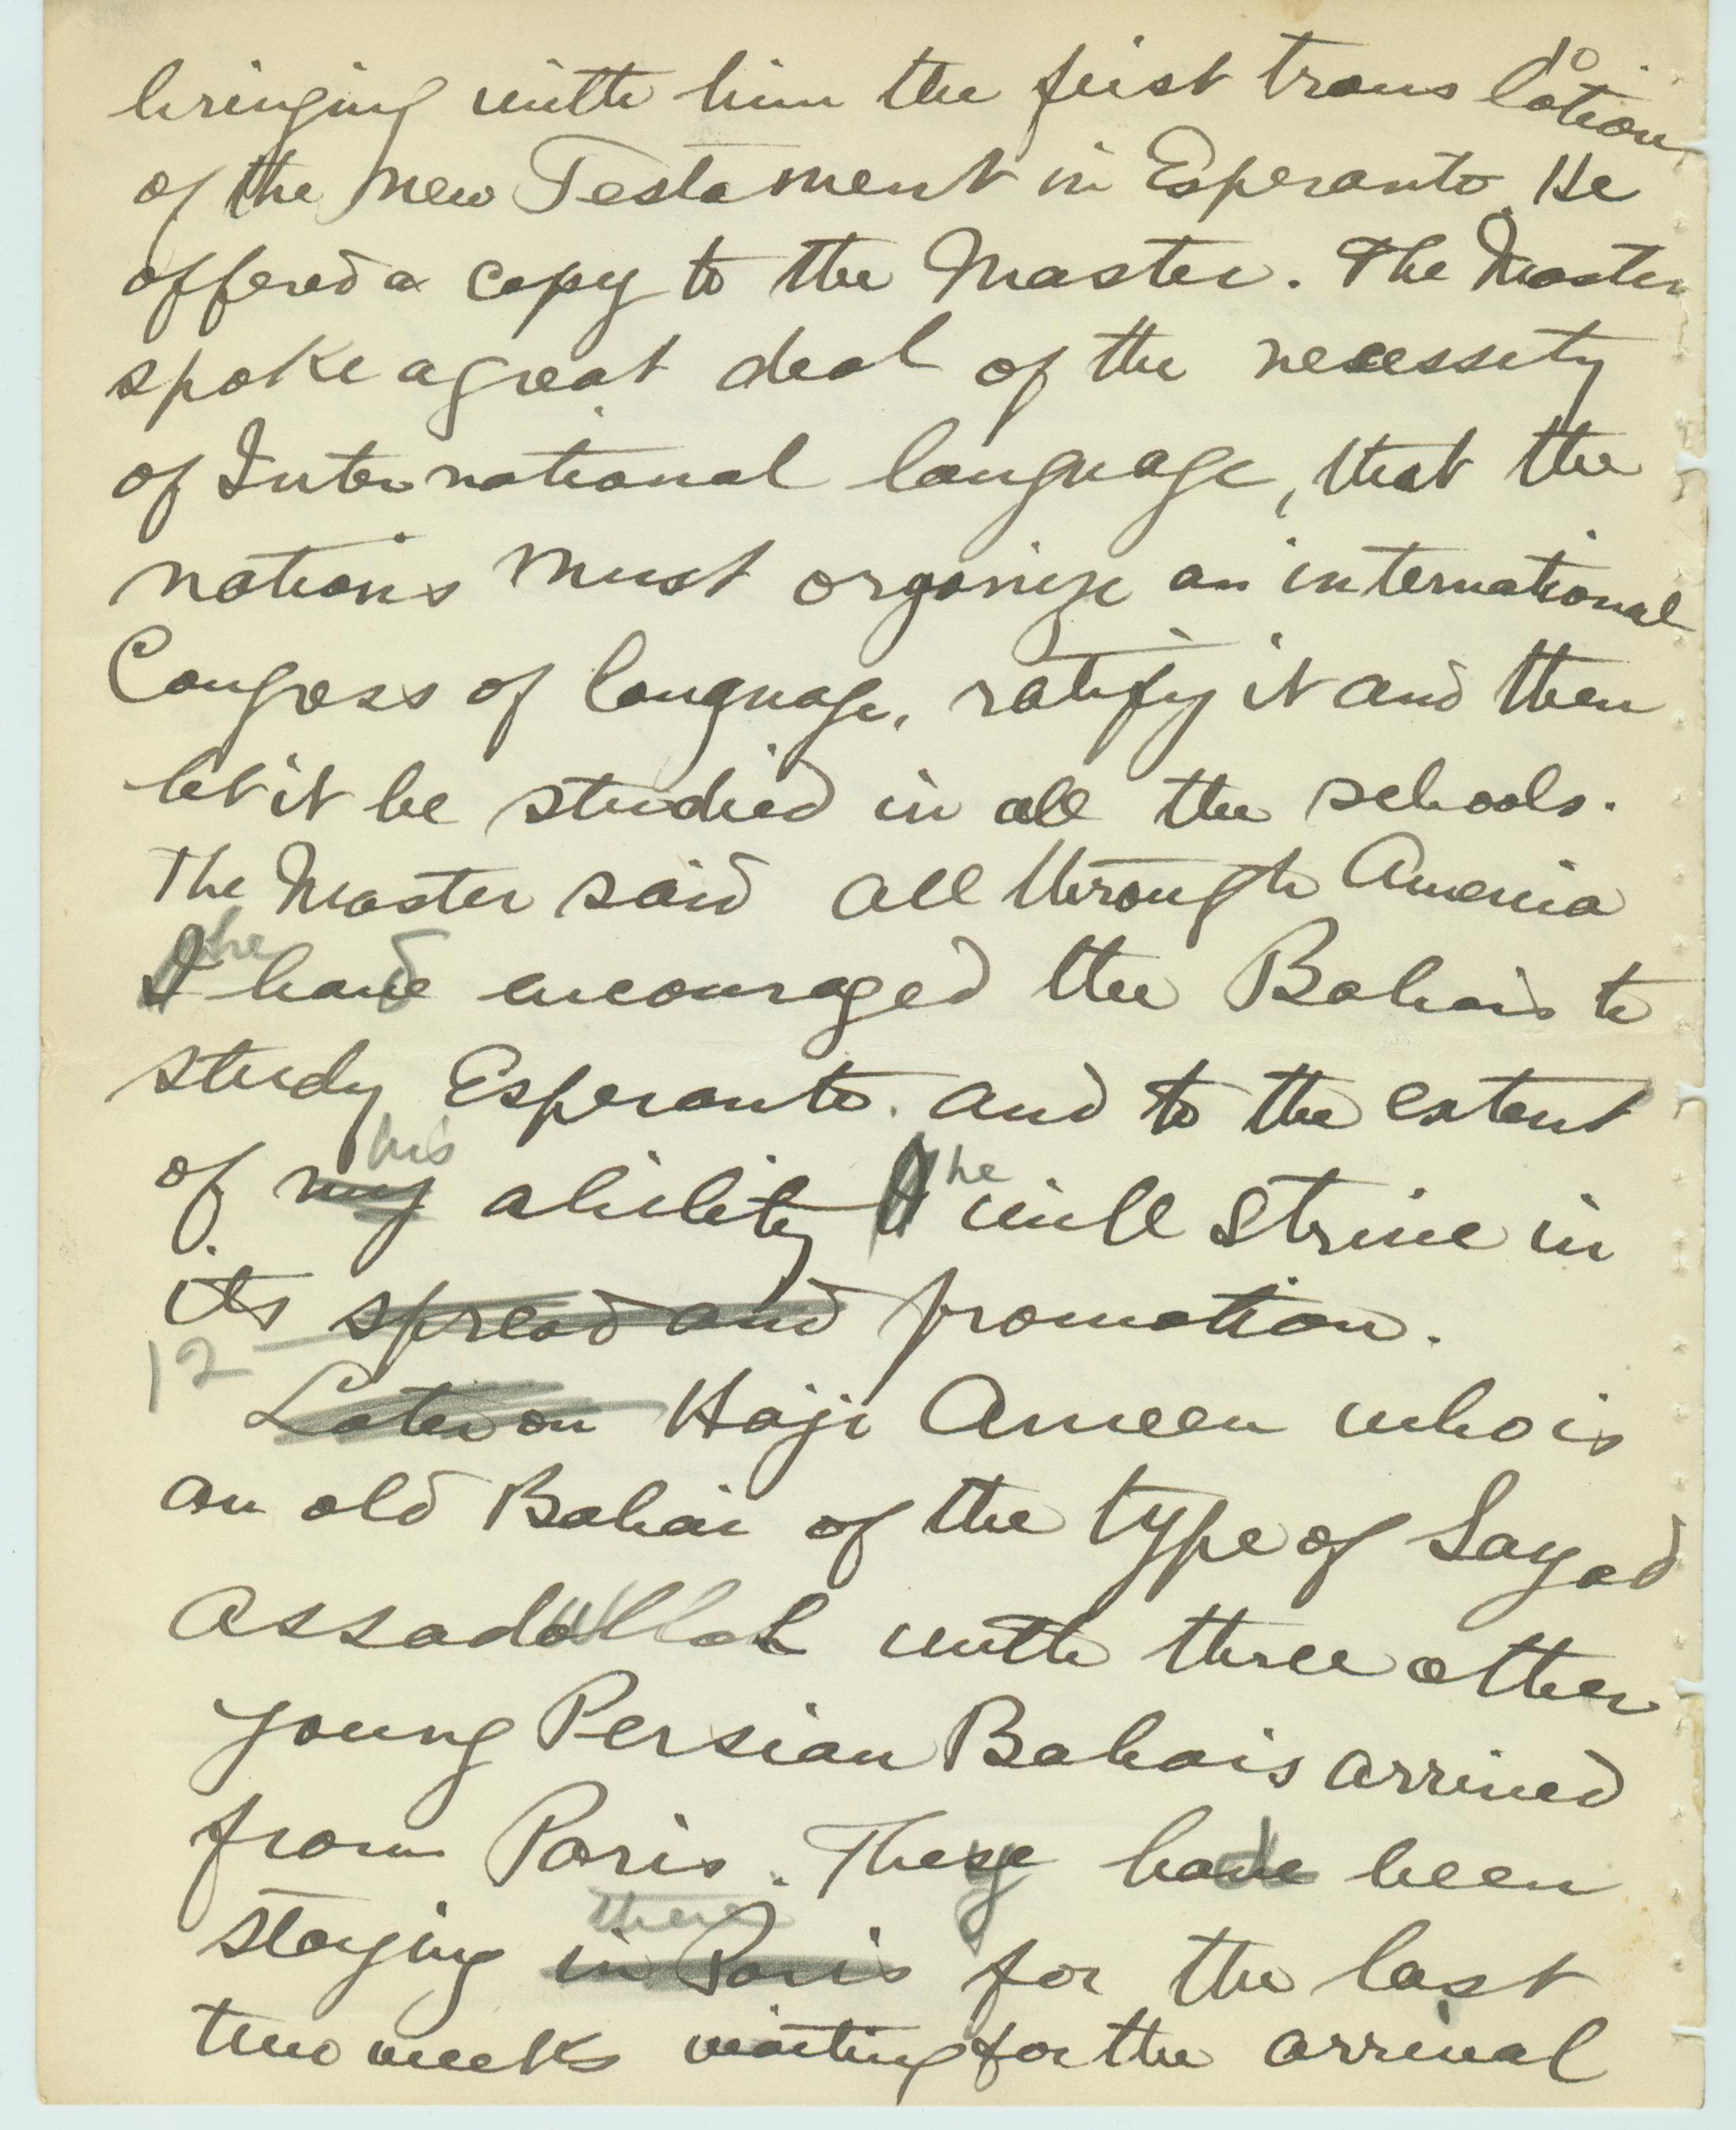 bringing with him the first translation
of the New Testament in Esperanto. He
offered a copy to the Master. The Master
spoke a great deal of the necessity
of International language, that the
nations must organize an international
Congress of language, ratify it and then
let it be studied in all the schools.
The Master said all through America
I he have d encouraged the Bahais to
study Esperanto. and to the extent
of my his ability I he will strive in
its spread and promotion.
12 Later on Haji Ameen who is
an old Bahai of the type of Sayad
Assadullah with three other
young Persian Bahais arrived
from Paris. They had been
staying in Paris there for the last
two weeks waiting for the arrival